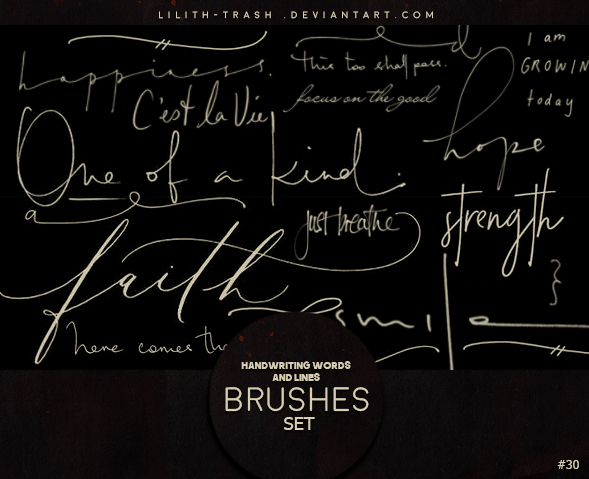 LILITH-TRASH .DEVIANTART.COM
happiness.
this too shall pass.
I am
GROWIN
today
C'est la Vie
focus on the good
hope
One of a kind.
a
just breathe
strength
faith
}
smile
here comes th
HANDWRITING WORDS
AND LINES
BRUSHES
SET
#30